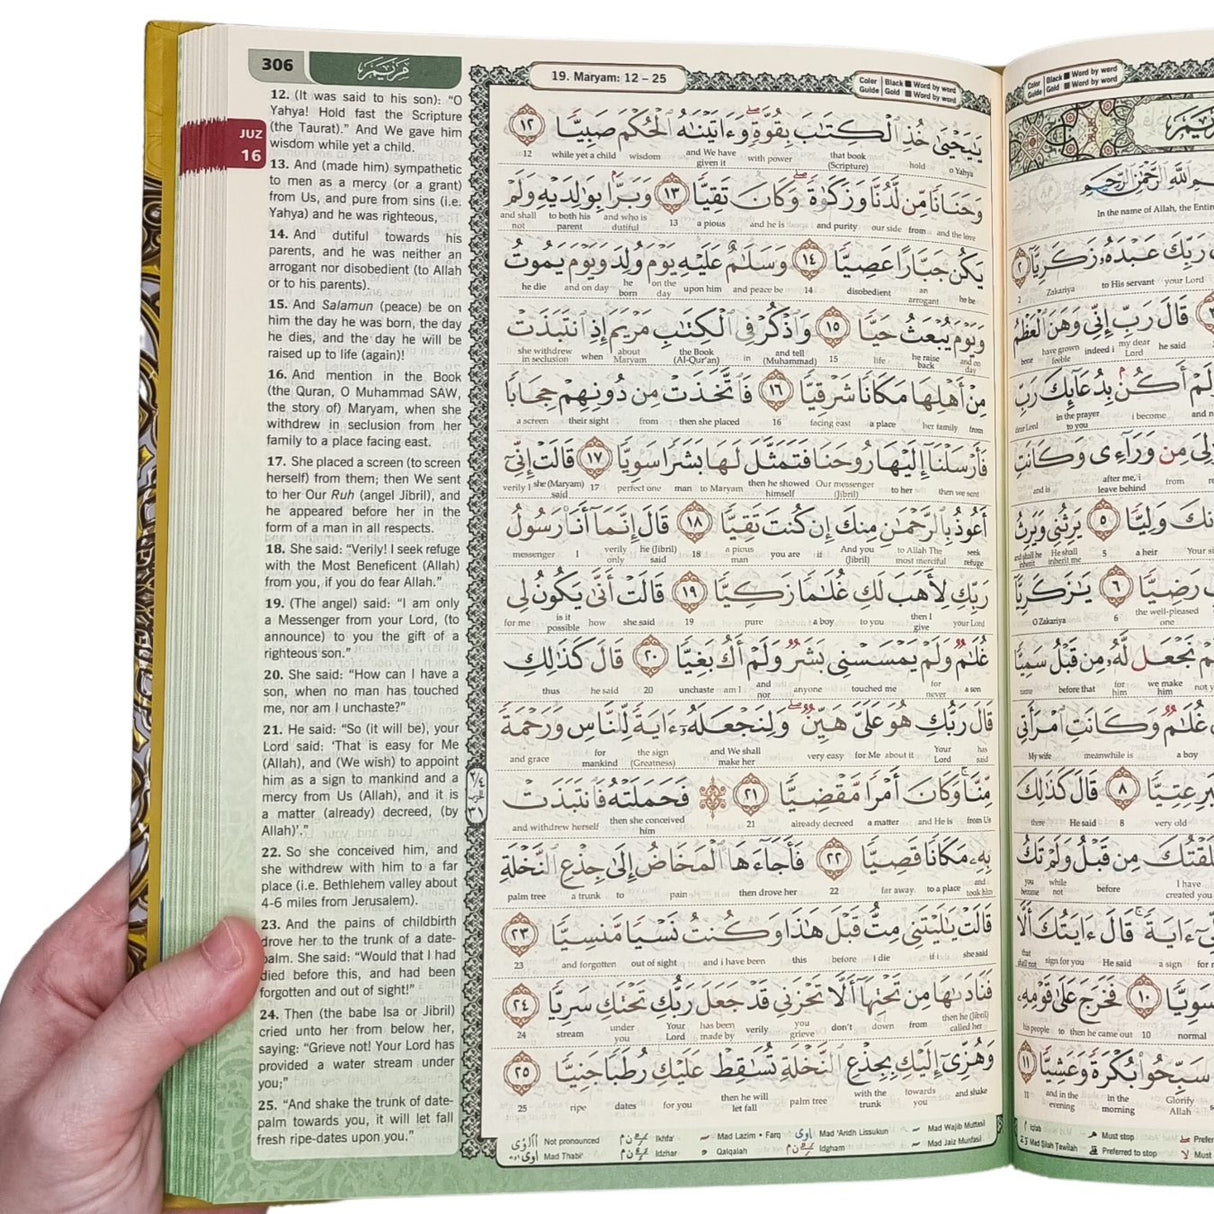 306
مريم
JUZ
16
12. (It was said to his son): “O
Yahya! Hold fast the Scripture
(the Taurat).” And We gave him
wisdom while yet a child.
13. And (made him) sympathetic
to men as a mercy (or a grant)
from Us, and pure from sins (i.e.
Yahya) and he was righteous,
14. And dutiful towards his
parents, and he was neither an
arrogant nor disobedient (to Allah
or to his parents).
15. And Salamun (peace) be on
him the day he was born, the day
he dies, and the day he will be
raised up to life (again)!
16. And mention in the Book
(the Quran, O Muhammad SAW,
the story of) Maryam, when she
withdrew in seclusion from her
family to a place facing east.
17. She placed a screen (to screen
herself) from them; then We sent
to her Our Ruh (angel Jibril), and
he appeared before her in the
form of a man in all respects.
18. She said: “Verily! I seek refuge
with the Most Beneficent (Allah)
from you, if you do fear Allah.”
19. (The angel) said: “I am only
a Messenger from your Lord, (to
announce) to you the gift of a
righteous son.”
20. She said: “How can I have a
son, when no man has touched
me, nor am I unchaste?”
21. He said: “So (it will be), your
Lord said: ‘That is easy for Me
(Allah), and (We wish) to appoint
him as a sign to mankind and a
mercy from Us (Allah), and it is
a matter (already) decreed, (by
Allah)’.”
22. So she conceived him, and
she withdrew with him to a far
place (i.e. Bethlehem valley about
4-6 miles from Jerusalem).
23. And the pains of childbirth
drove her to the trunk of a date-
palm. She said: “Would that I had
died before this, and had been
forgotten and out of sight!”
24. Then (the babe Isa or Jibril)
cried unto her from below her,
saying: “Grieve not! Your Lord has
provided a water stream under
you;”
25. “And shake the trunk of date-
palm towards you, it will let fall
fresh ripe-dates upon you.”
19. Maryam: 12 – 25
Color Guide Black Word by word
Gold Word by word
يَٰيَحْيَىٰ خُذِ ٱلْكِتَٰبَ بِقُوَّةٍ وَءَاتَيْنَٰهُ ٱلْحُكْمَ صَبِيًّا ١٢
o Yahya hold that book (Scripture) with power and We have given it wisdom while yet a child 12
وَحَنَانًا مِّن لَّدُنَّا وَزَكَوٰةً وَكَانَ تَقِيًّا ١٣ وَبَرًّۢا بِوَٰلِدَيْهِ وَلَمْ
and the love from our side and purity and he is a pious 13 and who is dutiful to both his parent and shall not
يَكُن جَبَّارًا عَصِيًّا ١٤ وَسَلَٰمٌ عَلَيْهِ يَوْمَ وُلِدَ وَيَوْمَ يَمُوتُ
he be an arrogant disobedient 14 and peace be upon him on the day he born and on day he die
وَيَوْمَ يُبْعَثُ حَيًّا ١٥ وَٱذْكُرْ فِى ٱلْكِتَٰبِ مَرْيَمَ إِذِ ٱنتَبَذَتْ
and on day he raise back life 15 and tell (Muhammad) in the Book (Al-Qur'an) about Maryam when she withdrew in seclusion
مِنْ أَهْلِهَا مَكَانًا شَرْقِيًّا ١٦ فَٱتَّخَذَتْ مِن دُونِهِمْ حِجَابًا
from her family a place facing east 16 then she placed from their sight a screen
فَأَرْسَلْنَآ إِلَيْهَا رُوحَنَا فَتَمَثَّلَ لَهَا بَشَرًا سَوِيًّا ١٧ قَالَتْ إِنِّىٓ
then we sent to her Our messenger (Jibril) then he showed himself to Maryam man perfect one 17 she (Maryam) said verily I
أَعُوذُ بِٱلرَّحْمَٰنِ مِنكَ إِن كُنتَ تَقِيًّا ١٨ قَالَ إِنَّمَآ أَنَا۠ رَسُولُ
seek refuge to Allah The most merciful And you (Jibril) if you are a pious man 18 he (Jibril) said verily only I messenger
رَبِّكِ لِأَهَبَ لَكِ غُلَٰمًا زَكِيًّا ١٩ قَالَتْ أَنَّىٰ يَكُونُ لِى
your Lord then I give to you a boy pure 19 she said how is it possible for me
غُلَٰمٌ وَلَمْ يَمْسَسْنِى بَشَرٌ وَلَمْ أَكُ بَغِيًّا ٢٠ قَالَ كَذَٰلِكِ
a son for never touched me anyone and nor am I unchaste 20 he said thus
قَالَ رَبُّكِ هُوَ عَلَىَّ هَيِّنٌ وَلِنَجْعَلَهُۥٓ ءَايَةً لِّلنَّاسِ وَرَحْمَةً
has said Your Lord about it for Me very easy and We shall make her the sign (Greatness) for mankind and grace
مِّنَّا وَكَانَ أَمْرًا مَّقْضِيًّا ٢١ فَحَمَلَتْهُ فَٱنتَبَذَتْ
from Us and He is a matter already decreed 21 then she conceived him and withdrew herself
بِهِۦ مَكَانًا قَصِيًّا ٢٢ فَأَجَآءَهَا ٱلْمَخَاضُ إِلَىٰ جِذْعِ ٱلنَّخْلَةِ
and took him to a place far away 22 then drove her pain to a trunk palm tree
قَالَتْ يَٰلَيْتَنِى مِتُّ قَبْلَ هَٰذَا وَكُنتُ نَسْيًا مَّنسِيًّا ٢٣
she said if i I die before this and i have been out of sight and forgotten 23
فَنَادَىٰهَا مِن تَحْتِهَآ أَلَّا تَحْزَنِى قَدْ جَعَلَ رَبُّكِ تَحْتَكِ سَرِيًّا ٢٤
then he (Jibril) called her from down don't you grieve verily has been made by Your Lord under you stream 24
وَهُزِّىٓ إِلَيْكِ بِجِذْعِ ٱلنَّخْلَةِ تُسَٰقِطْ عَلَيْكِ رُطَبًا جَنِيًّا ٢٥
and shake towards you with the trunk palm tree then he will let fall for you dates ripe 25
Not pronounced Ikhfa' Mad Lazim • Farq Mad 'Aridh Lissukun Mad Wajib Muttasil
Mad Thabi' Idzhar Qalqalah Idgham Mad Jaiz Munfasil
Color Guide Black Word by word
Gold Word by word
In the name of Allah, the
رَبِّكَ عَبْدَهُۥ زَكَرِيَّا ٢
your Lord to His servant Zakariya 2
قَالَ رَبِّ إِنِّى وَهَنَ ٱلْعَظْمُ
he said my dear Lord indeed i have grown feeble bone
أَكُنۢ بِدُعَآئِكَ رَبِّ
i become in the prayer to you
مِن وَرَآءِى وَكَانَتِ
from after me, i leave behind and is
وَلِيًّا ٥ يَرِثُنِى وَيَرِثُ
a heir 5 He shall inherit me and shall he inherit
رَضِيًّا ٦ يَٰزَكَرِيَّآ
the well-pleased one 6 O Zakariya
نَجْعَل لَّهُۥ مِن قَبْلُ سَمِيًّا
we make him for him before that name
غُلَٰمٌ وَكَانَتِ ٱمْرَأَتِى
a boy meanwhile is My wife
عِتِيًّا ٨ قَالَ كَذَٰلِكَ
very old 8 He said
مِن قَبْلُ وَلَمْ تَكُ
I have created you before while not you become
ءَايَةً قَالَ ءَايَتُكَ أَلَّا
a sign He said sign for you that shall not
سَوِيًّا ١٠ فَخَرَجَ عَلَىٰ قَوْمِهِۦ
normal 10 then he came out to his people
سَبِّحُوا۟ بُكْرَةً وَعَشِيًّا ١١
Glorify Allah in the morning and in the evening 11
Iqlab Must stop
Mad Silah Tawilah Preferred to stop Must